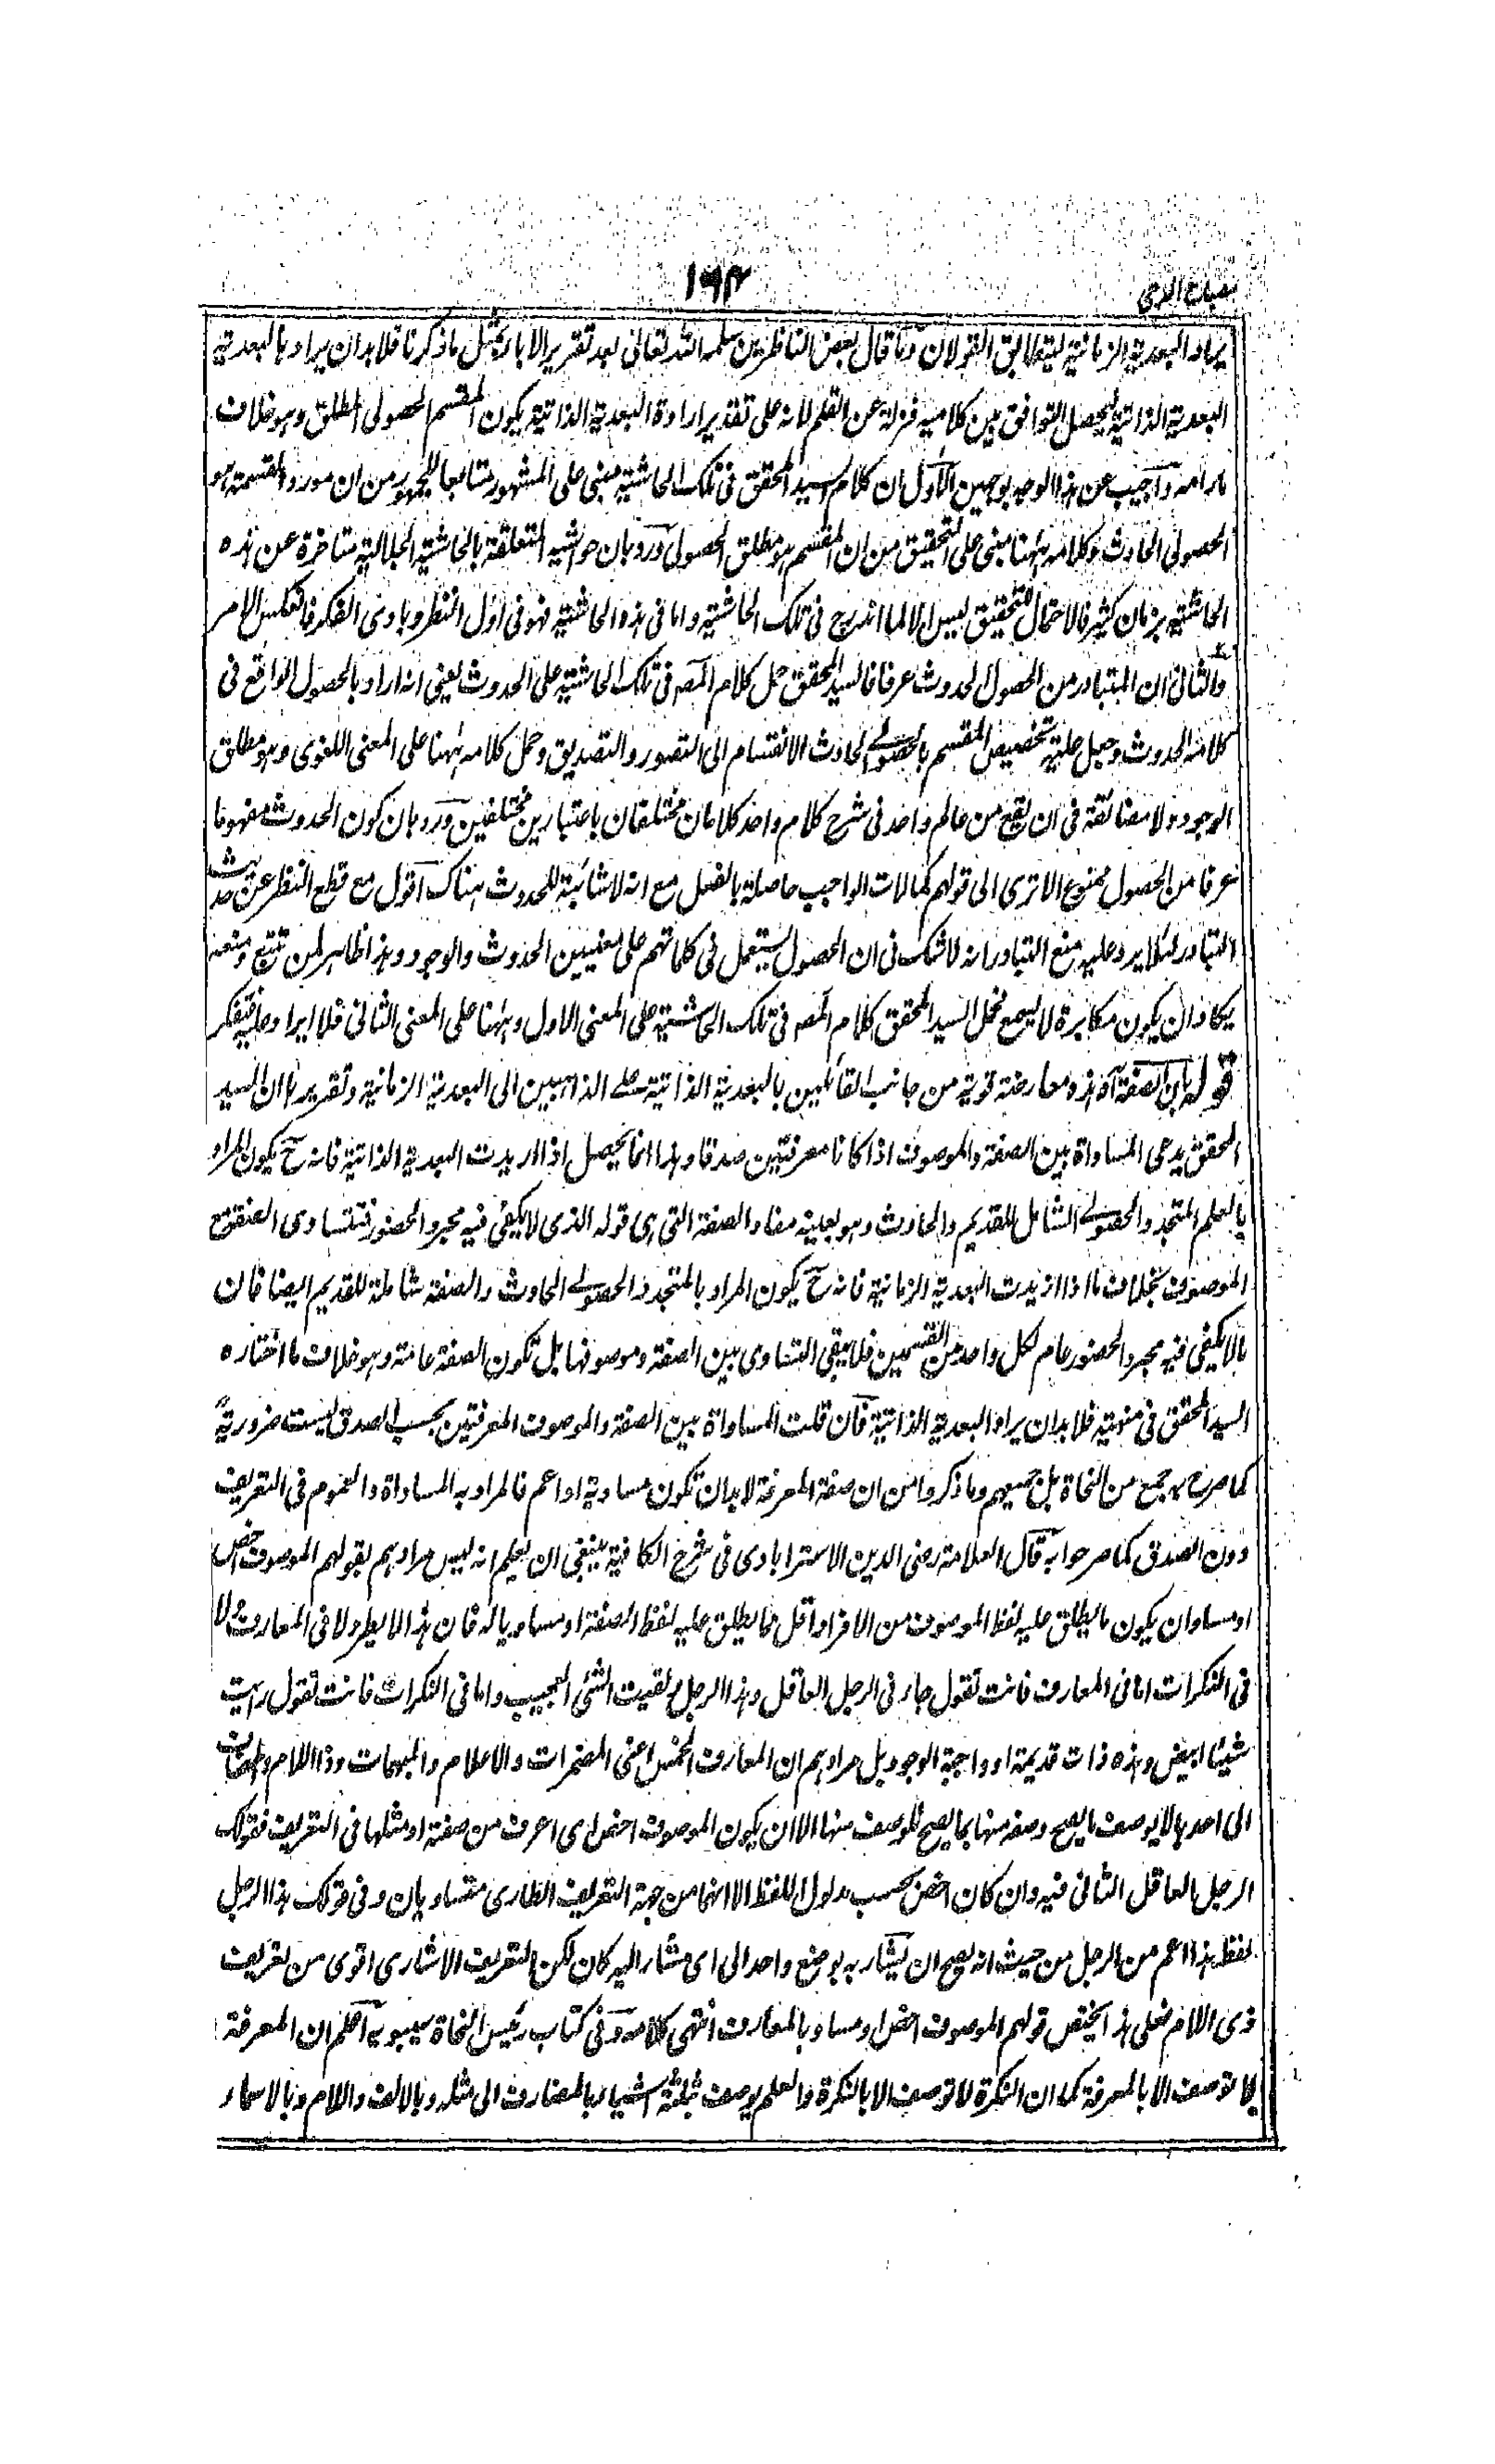 مصباح الدجى
١٦٤
يراد البعدية الزمانية ليتطابق القولان وما قال بعض الناظرين سلمه الله تعالى بعد تقرير الايراد بمثل ما ذكرنا فلا بد ان يراد بالبعدية
البعدية الذاتية ليحصل التوافق بين كلاميه فزلة عن القلم لانه على تقدير ارادة البعدية الذاتية يكون المقسم الحصولي المطلق وهو خلاف
مرامه واجيب عن هذا الوجه بوجهين الاول ان كلام السيد المحقق في تلك الحاشية مبني على المشهور متابعا للجمهور من ان مورد القسمة هو
الحصولي الحادث وكلامه ههنا مبني على التحقيق من ان المقسم هو مطلق الحصولي ورد بان حواشيه المتعلقة بالحاشية الجلالية متاخرة عن هذه
الحاشية بزمان كثير فالاحتمال للتحقيق ليس الا لما اندرج في تلك الحاشية واما في هذه الحاشية فهو في اول النظر وبادى الفكر فانعكس الامر
والثاني ان المتبادر من الحصول الحدوث عرفا فالسيد المحقق حمل كلام المصـ في تلك الحاشية على الحدوث يعني انه اراد بالحصول الواقع في
كلامه الحدوث وجعل علية تخصيص المقسم بالحصولي الحادث الانقسام الى التصور والتصديق وحمل كلامه ههنا على المعنى اللغوى وهو مطلق
الوجود ولا مضائقة في ان يقع من عالم واحد في شرح كلام واحد كلامان مختلفان باعتبارين مختلفين ورد بان كون الحدوث مفهوما
عرفا من الحصول ممنوع الا ترى الى قولهم كمالات الواجب حاصلة بالفعل مع انه لا شائبة للحدوث هناك اقول مع قطع النظر عن حديث
التبادر لئلا يرد عليه منع التبادر انه لا شك في ان الحصول يستعمل في كلماتهم على معنيين الحدوث والوجود وهذا ظاهر لمن تتبع ومنعه
يكاد ان يكون مكابرة لا يسمع فحمل السيد المحقق كلام المصـ في تلك الحاشية على المعنى الاول وههنا على المعنى الثاني فلا ايراد عليه فتفكر
قوله بان الصفة آه هذه معارضة قوية من جانب القائلين بالبعدية الذاتية على الذاهبين الى البعدية الزمانية وتقريرها ان السيد
المحقق يدعى المساواة بين الصفة والموصوف اذا كانا معرفتين صدقا وهذا انما يحصل اذا اريدت البعدية الذاتية فانه ح يكون المراد
بالعلم المتجدد الحصولي الشامل للقديم والحادث وهو بعينه مفاد الصفة التي هى قوله الذى لا يكفى فيه مجرد الحضور فتتساوى الصفة مع
الموصوف بخلاف ما اذا اريدت البعدية الزمانية فانه ح يكون المراد بالمتجدد الحصولي الحادث والصفة شاملة للقديم ايضا فان
ما لا يكفي فيه مجرد الحضور عام لكل واحد من القسمين فلا يبقى التساوى بين الصفة وموصوفها بل تكون الصفة عامة وهو خلاف ما اختاره
السيد المحقق في منهية فلا بد ان يراد البعدية الذاتية فان قلت المساواة بين الصفة والموصوف المعرفتين بحسب الصدق ليست ضرورية
كما صرح به جمع من النحاة بل جميعهم وما ذكروا من ان صفة المعرفة لا بد ان تكون مساوية او اعم فالمراد به المساواة والعموم في التعريف
دون الصدق كما صرحوا به قال العلامة رضى الدين الاسترابادى في شرح الكافية ينبغي ان يعلم انه ليس مرادهم بقولهم الموصوف اخص
او مساو ان يكون ما يطلق عليه لفظ الموصوف من الافراد اقل مما يطلق عليه لفظ الصفة او مساويا له فان هذا لا يطرد لا في المعارف ولا
في النكرات اما في المعارف فانت تقول جاءنى الرجل العاقل وهذا الرجل ولقيت الشئ العجيب واما في النكرات فانت تقول رايت
شيئا ابيض وهذه ذات قديمة او واجبة الوجود بل مرادهم ان المعارف الخمس اعنى المضمرات والاعلام والمبهمات وذا اللام والمضاف
الى احدها لا يوصف ما يصح وصفه منها بما يصح للوصف منها الا ان يكون الموصوف اخص اى اعرف من صفته او مثلها في التعريف فقولك
الرجل العاقل الثانى فيه وان كان اخص بحسب مدلول اللفظ الا انهما من جهة التعريف الطارى متساويان وفى قولك هذا الرجل
لفظ هذا اعم من الرجل من حيث انه يصح ان يشار به بوضع واحد الى اى مشار اليه كان لكن التعريف الاشارى اقوى من تعريف
ذى اللام فعلى هذا يختص قولهم الموصوف اخص او مساو بالمعارف انتهى كلامه وفى كتاب رئيس النحاة سيبويه اعلم ان المعرفة
لا توصف الا بالمعرفة كما ان النكرة لا توصف الا بالنكرة والعلم يوصف بثلثة اشياء بالمضاف الى مثله وبالالف واللام وبالاسماء